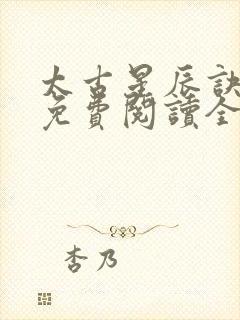 太古星辰訣
免費閱讀全
杏乃